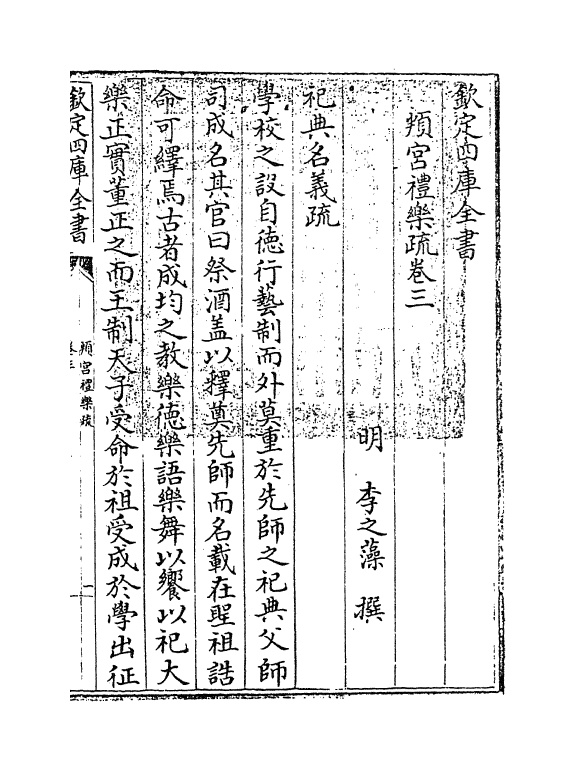 欽定四庫全書
頖宮禮樂疏卷三
明 李之藻 撰
祀典名義疏
學校之設自徳行藝制而外莫重於先師之祀典父師
司成名其官曰祭酒盖以釋奠先師而名載在聖祖誥
命可繹焉古者成均之教樂徳樂語樂舞以饗以祀大
樂正實董正之而王制天子受命於祖受成於學出征
欽定四庫全書
頖宮禮樂疏
卷三
一